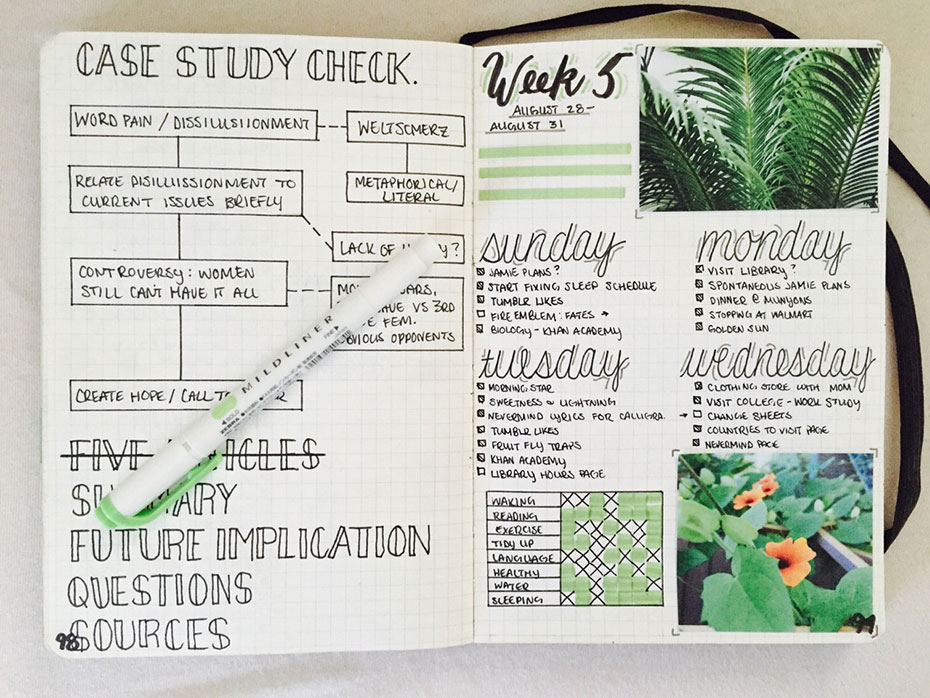 CASE STUDY CHECK.
WORD PAIN / DISSILLSIIONMENT
WELTSCMERZ
METAPHORICAL/
LITERAL
RELATE DISILLISSIONMENT TO
CURRENT ISSUES BRIEFLY
LACK OF
?
CONTROVERSY: WOMEN
STILL CAN'T HAVE IT ALL
VS 3RD
FEM.
OPPONENTS
CREATE HOPE / CALL
FIVE
FUTURE IMPLICATION
QUESTIONS
SOURCES
98
MILDLINER
ZEBRA
Week 5
AUGUST 28-
AUGUST 31
sunday
JAMIE PLANS?
START FIXING SLEEP SCHEDULE
TUMBLR LIKES
FIRE EMBLEM: FATES →
BIOLOGY - KHAN ACADEMY
monday
VISIT LIBRARY?
SPONTANEOUS JAMIE PLANS
DINNER @ MUNYONS
STOPPING AT WALMART
GOLDEN SUN
tuesday
MORNING STAR
SWEETNESS & LIGHTNING
NEVERMIND LYRICS FOR CALLIGRA.
TUMBLR LIKES
FRUIT FLY TRAPS
KHAN ACADEMY
LIBRARY HOURS PAGE
wednesday
CLOTHING STORE WITH MOM
VISIT COLLEGE - WORK STUDY
→ CHANGE SHEETS
COUNTRIES TO VISIT PAGE
NEVERMIND PAGE
WAKING
READING
EXERCISE
TIDY UP
LANGUAGE
HEALTHY
WATER
SLEEPING
99